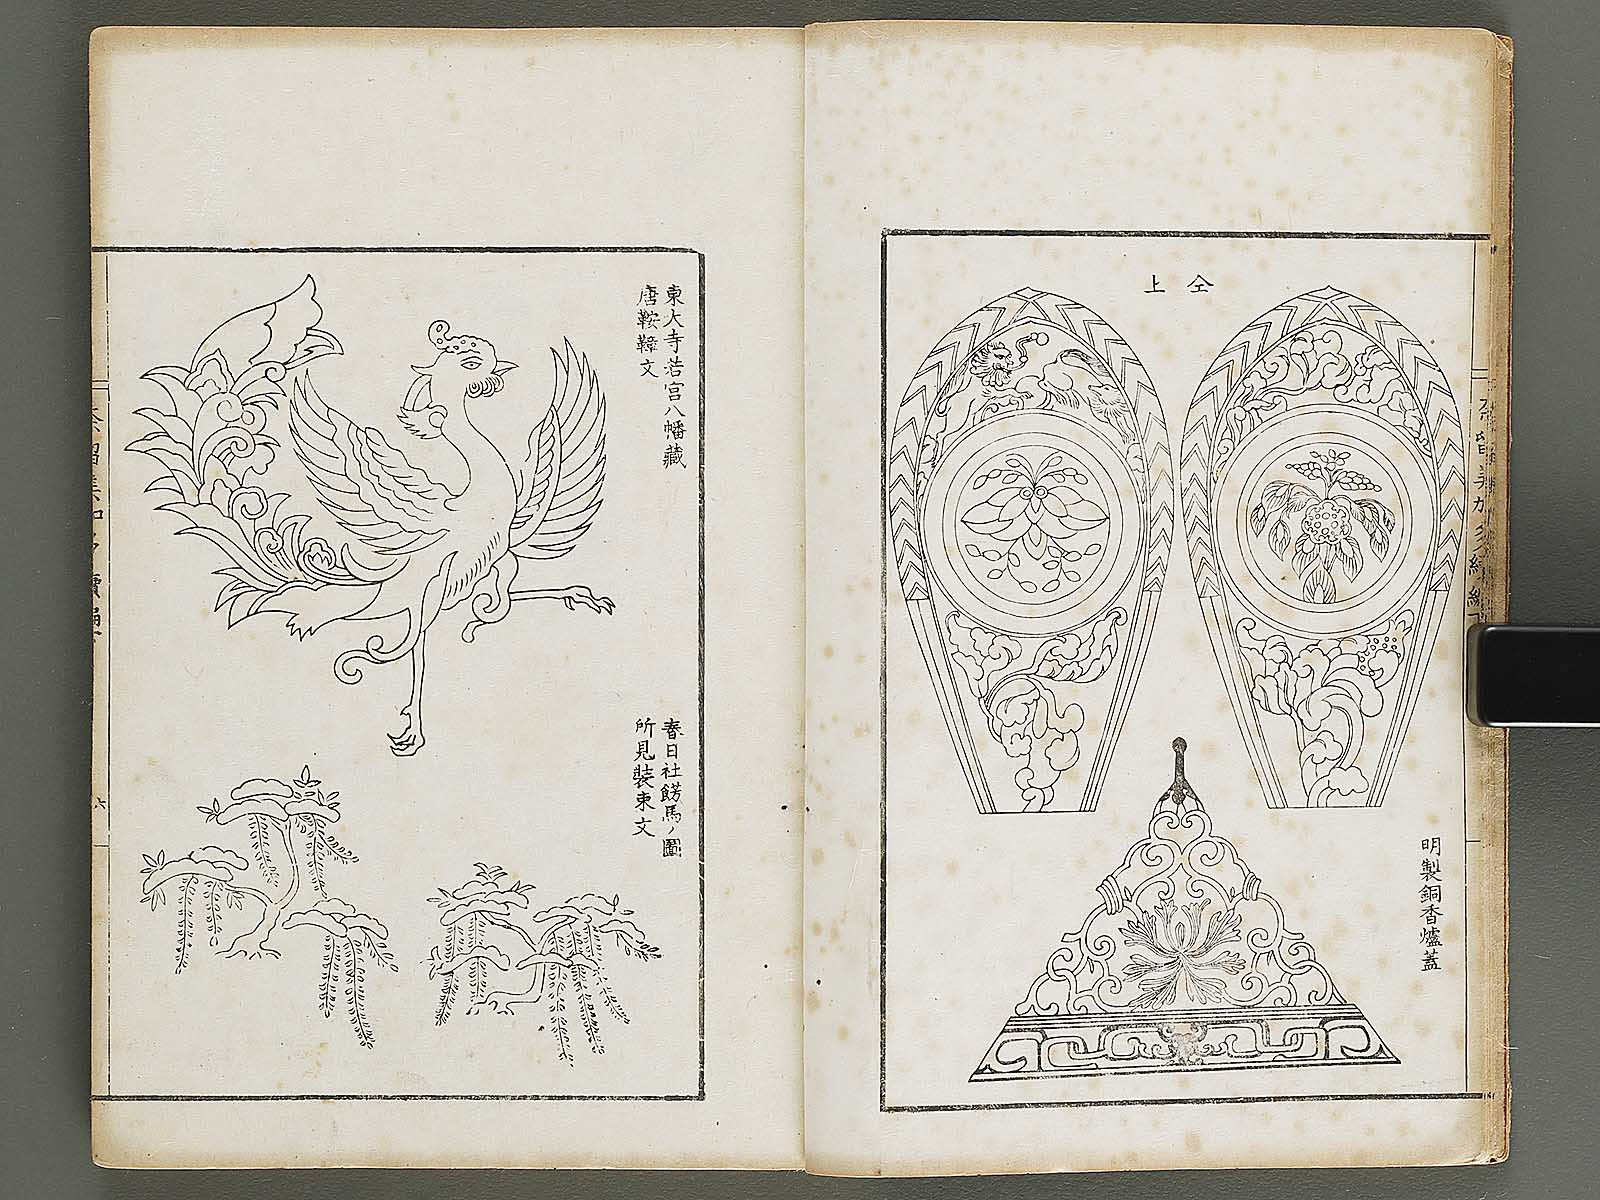 仝上
明製銅香爐蓋
東大寺若宮八幡藏
唐鞍鞖文
春日社餝馬ノ圖
所見裝束文
六